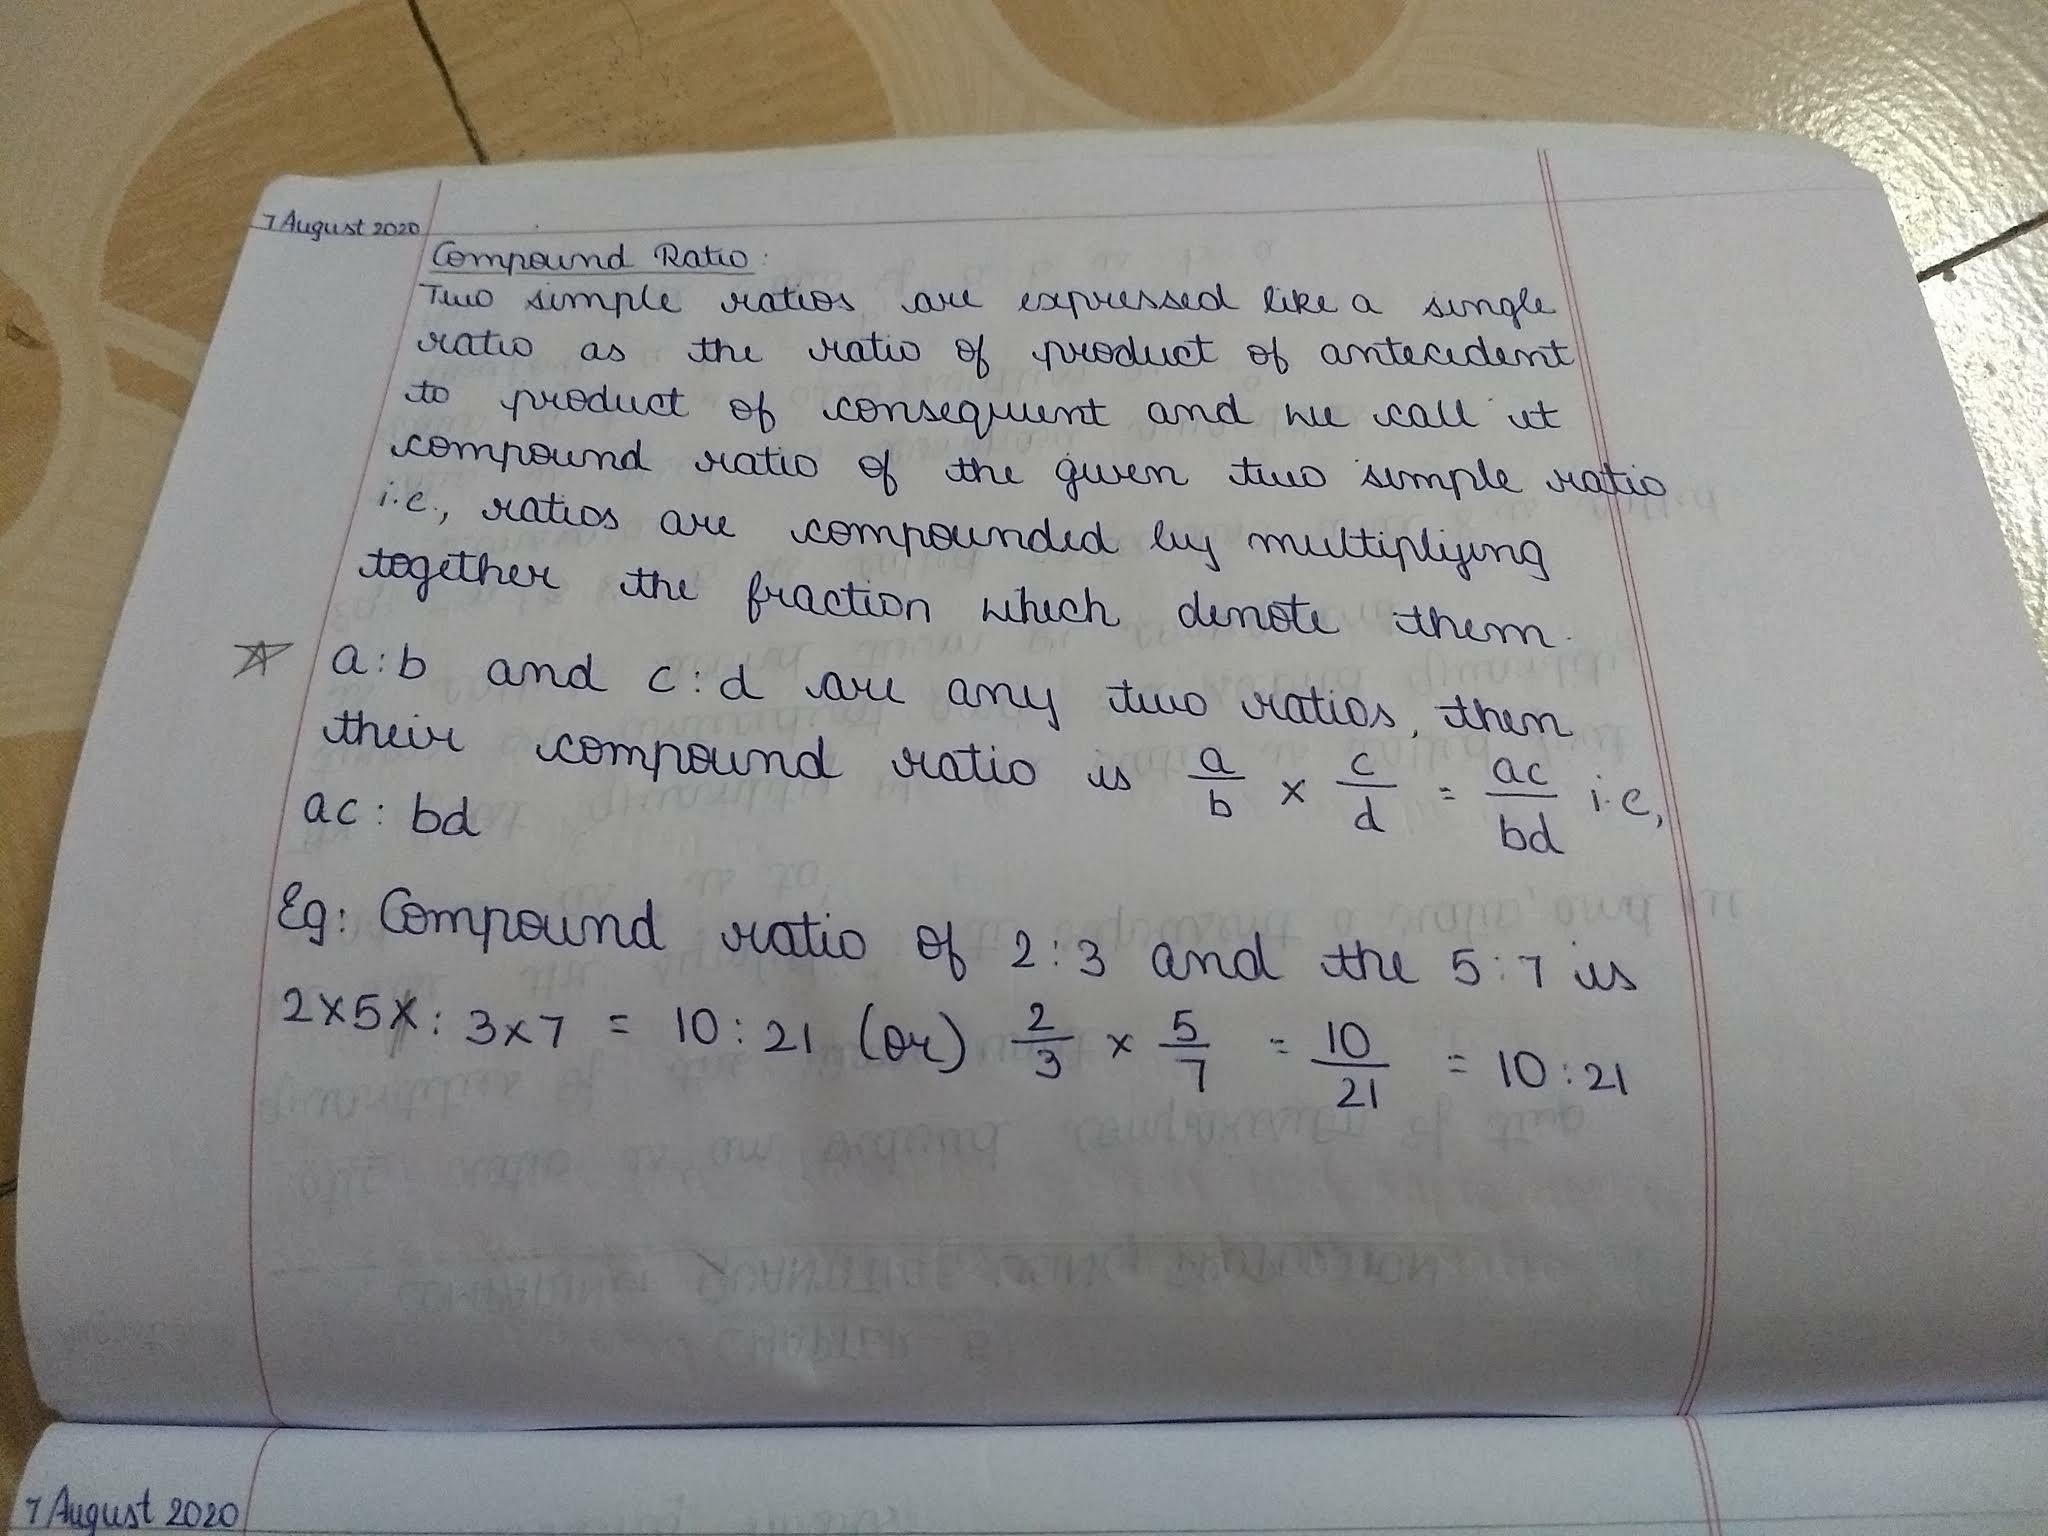 7 August 2020
Compound Ratio:
Two simple ratios are expressed like a single
ratio as the ratio of product of antecedent
to product of consequent and we call it
compound ratio of the given two simple ratio
i.e., ratios are compounded by multiplying
together the fraction which denote them.
a:b and c:d are any two ratios, then
their compound ratio is a/b × c/d = ac/bd i.e,
ac : bd
Eg: Compound ratio of 2:3 and the 5:7 is
2×5 : 3×7 = 10:21 (or) 2/3 × 5/7 = 10/21 = 10:21
7 August 2020